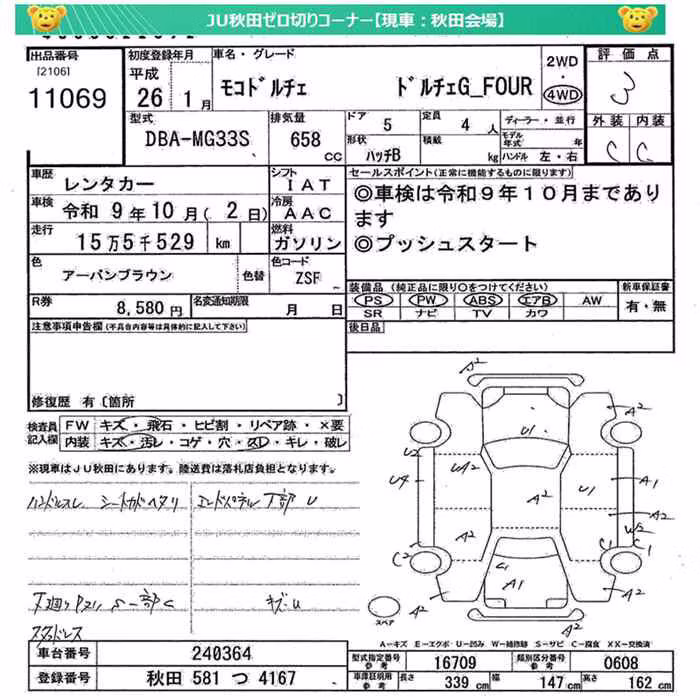 JU秋田ゼロ切りコーナー【現車：秋田会場】
出品番号 初度登録年月 車名・グレード 2WD 評価点
[2106] 平成 ・ 3
11069 26年 1月 モコドルチェ ドルチェG_FOUR 4WD 外装 内装
型式 排気量 ドア 5 定員 4人 ディーラー・並行 C C
DBA-MG33S 658cc 形状 ハッチB 積載 kg モデル年式 年
ハンドル 左・右
車歴 レンタカー シフト IAT セールスポイント(正常に機能するものに限ります)
車検 令和 9年10月(2日) 冷房 AAC ◎車検は令和9年10月まであり
ます
走行 15万5千529 km 燃料 ガソリン ◎プッシュスタート
色 アーバンブラウン 色替 色コード ZSF
装備品(純正品に限り○をつけてください) 新車保証書
R券 8,580円 名変通知期限 月 日 PS PW ABS エアB AW 有・無
SR ナビ TV カワ
注意事項申告欄(不具合内容等は具体的に記入して下さい) 後日品
修復歴 有〔箇所 〕
検査員記入欄 FW キズ・飛石・ヒビ割・リペア跡・×要
内装 キズ・汚レ・コゲ・穴・スレ・キレ・破レ
※現車はJU秋田にあります。陸送費は落札店負担となります。
ハンドルスレ シートカドヘタリ エンドパネル下部 U
下廻りPスリ S一部C キズ・U
スタッドレス
A2
A2
U1
U2
U4 UA2 A2 U1 A1
A2
W2
A2 C1 C1
C2 A1
A2 A2
スペア
A－キズ E－エクボ・U－凹み W－補修跡 S－サビ C－腐食 XX－交換済
車台番号 240364 型式指定番号 参考 16709 類別区分番号 参考 0608
登録番号 秋田 581 つ 4167 車庫証明用 参考 長さ 339cm 幅 147cm 高さ 162cm